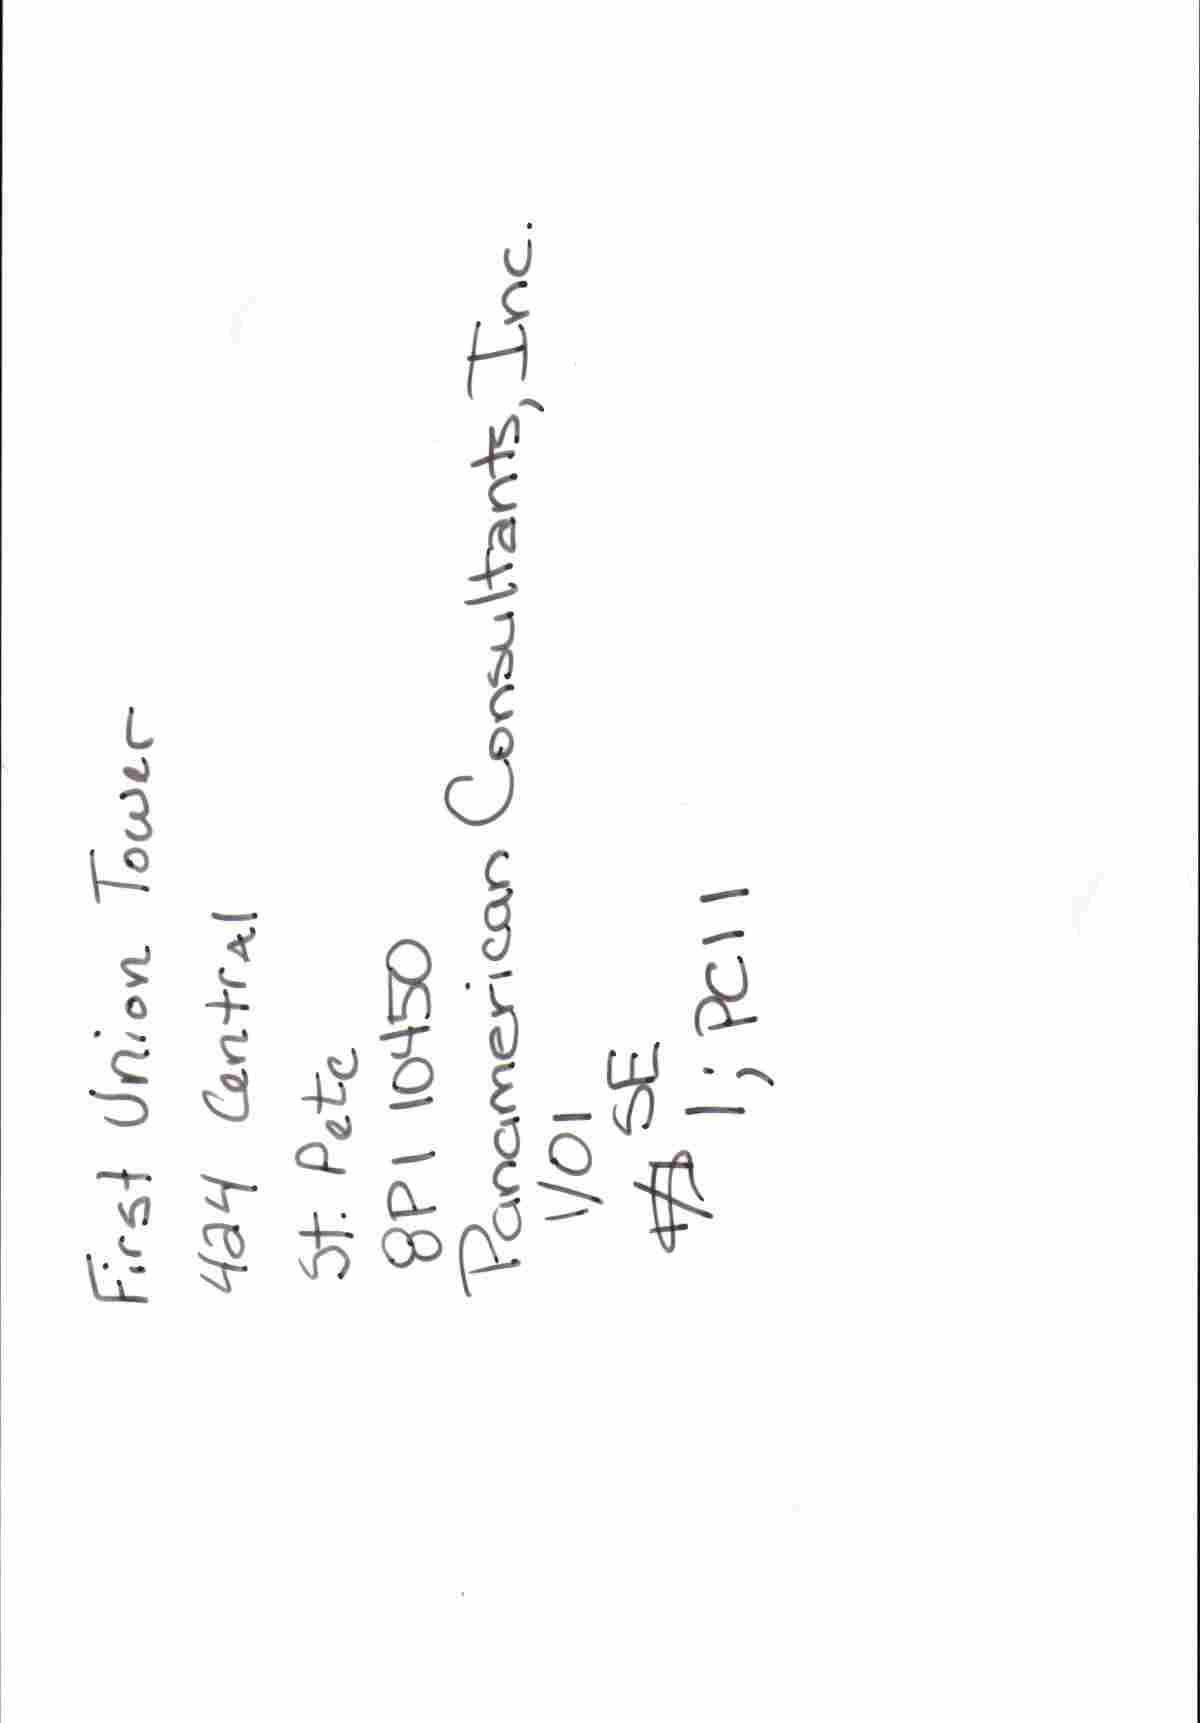 First Union Tower
424 Central
St. Pete
8PI 10450
Panamerican Consultants, Inc.
1/01
SE
1; PC11